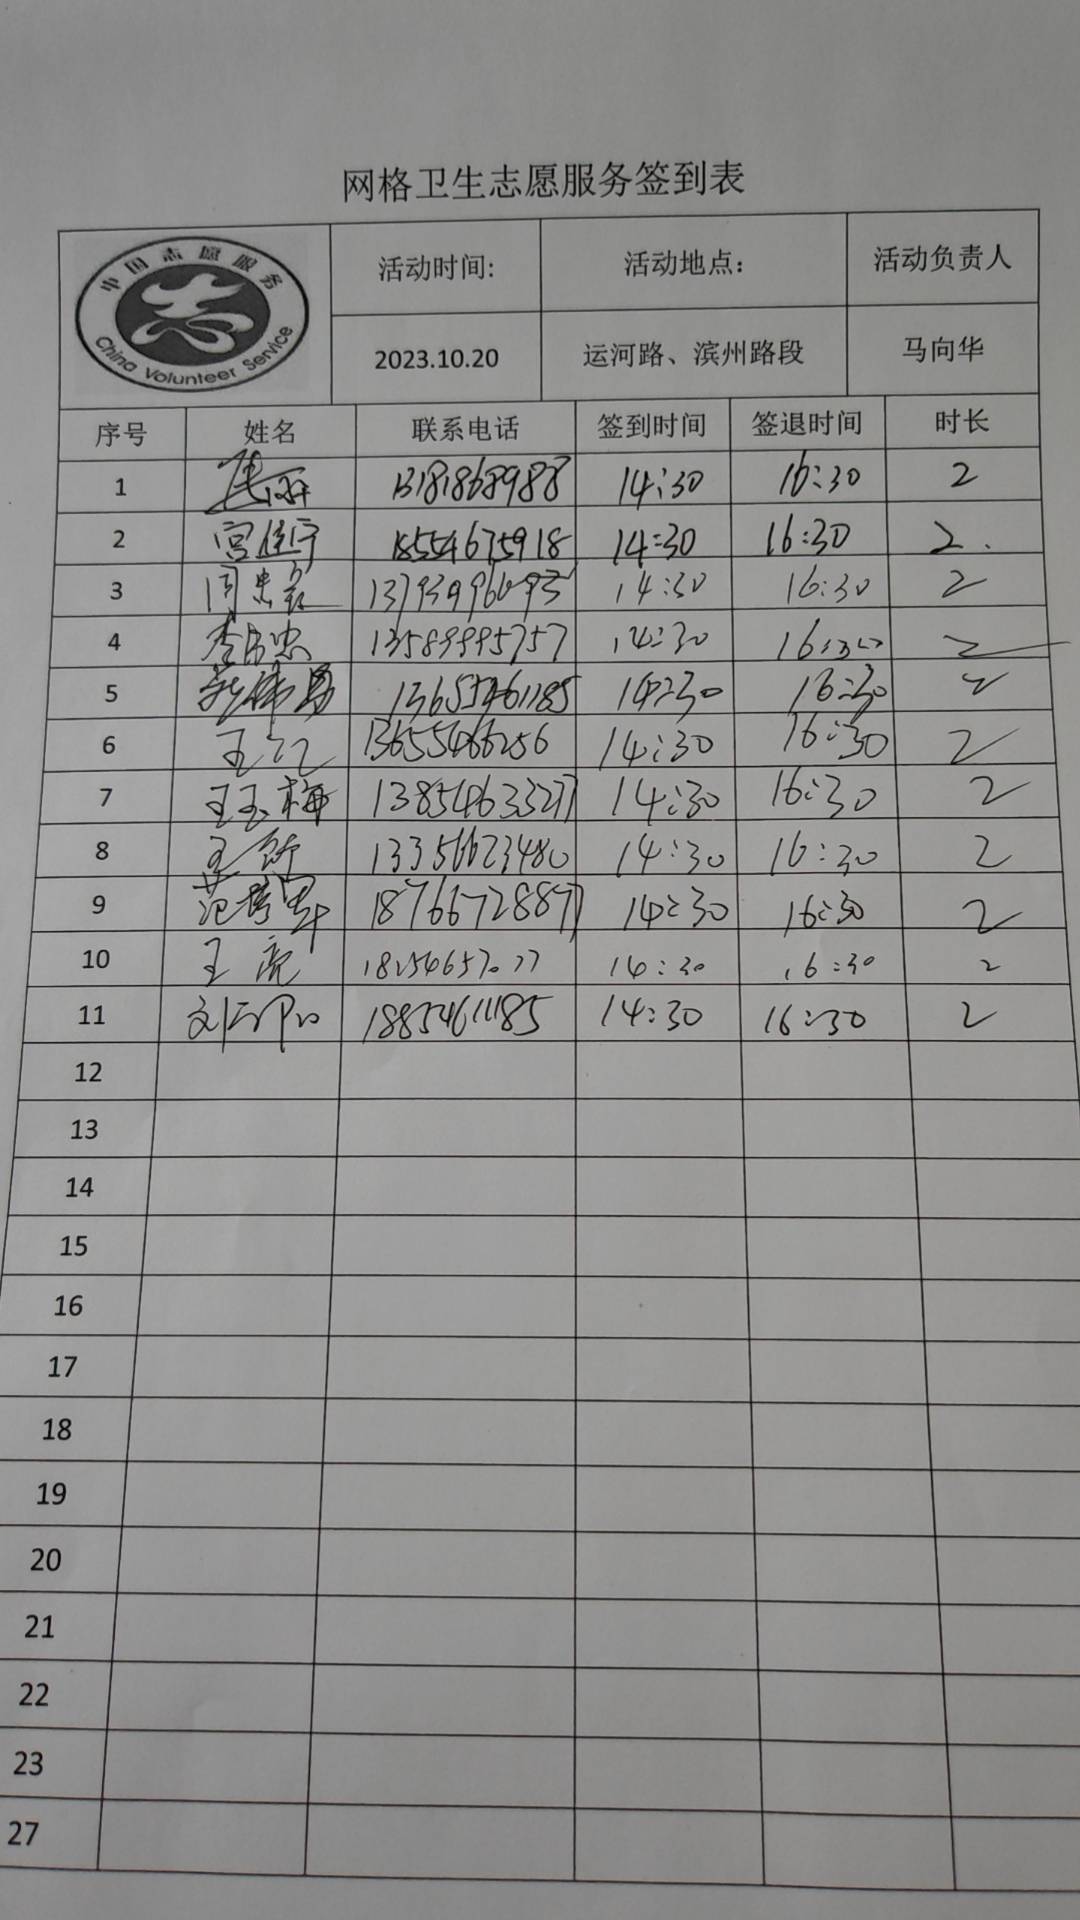 网格卫生志愿服务签到表
中国志愿服务
China Volunteer Service
活动时间: 活动地点: 活动负责人
2023.10.20 运河路、滨州路段 马向华
序号 姓名 联系电话 签到时间 签退时间 时长
1 13181868988 14:30 16:30 2
2 宫佳宁 18554675918 14:30 16:30 2.
3 14:30 16:30 2
4 13589995757 14:30 16:30 2
5 13655461185 14:30 16:30 2
6 王红 13655466256 14:30 16:30 2
7 王玉梅 13854633277 14:30 16:30 2
8 13356623480 14:30 16:30 2
9 18766728877 14:30 16:30 2
10 王亮 14:30 16:30 2
11 18854611185 14:30 16:30 2
12
13
14
15
16
17
18
19
20
21
22
23
27